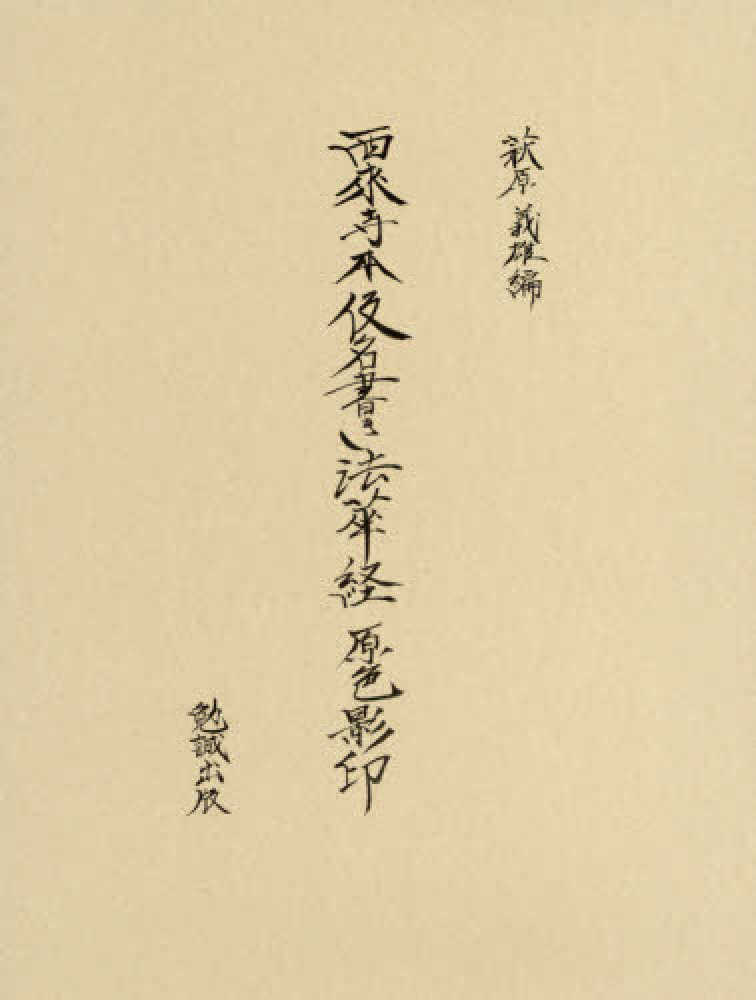 萩原義雄編
西來寺本仮名書き法華経 原色影印
勉誠出版